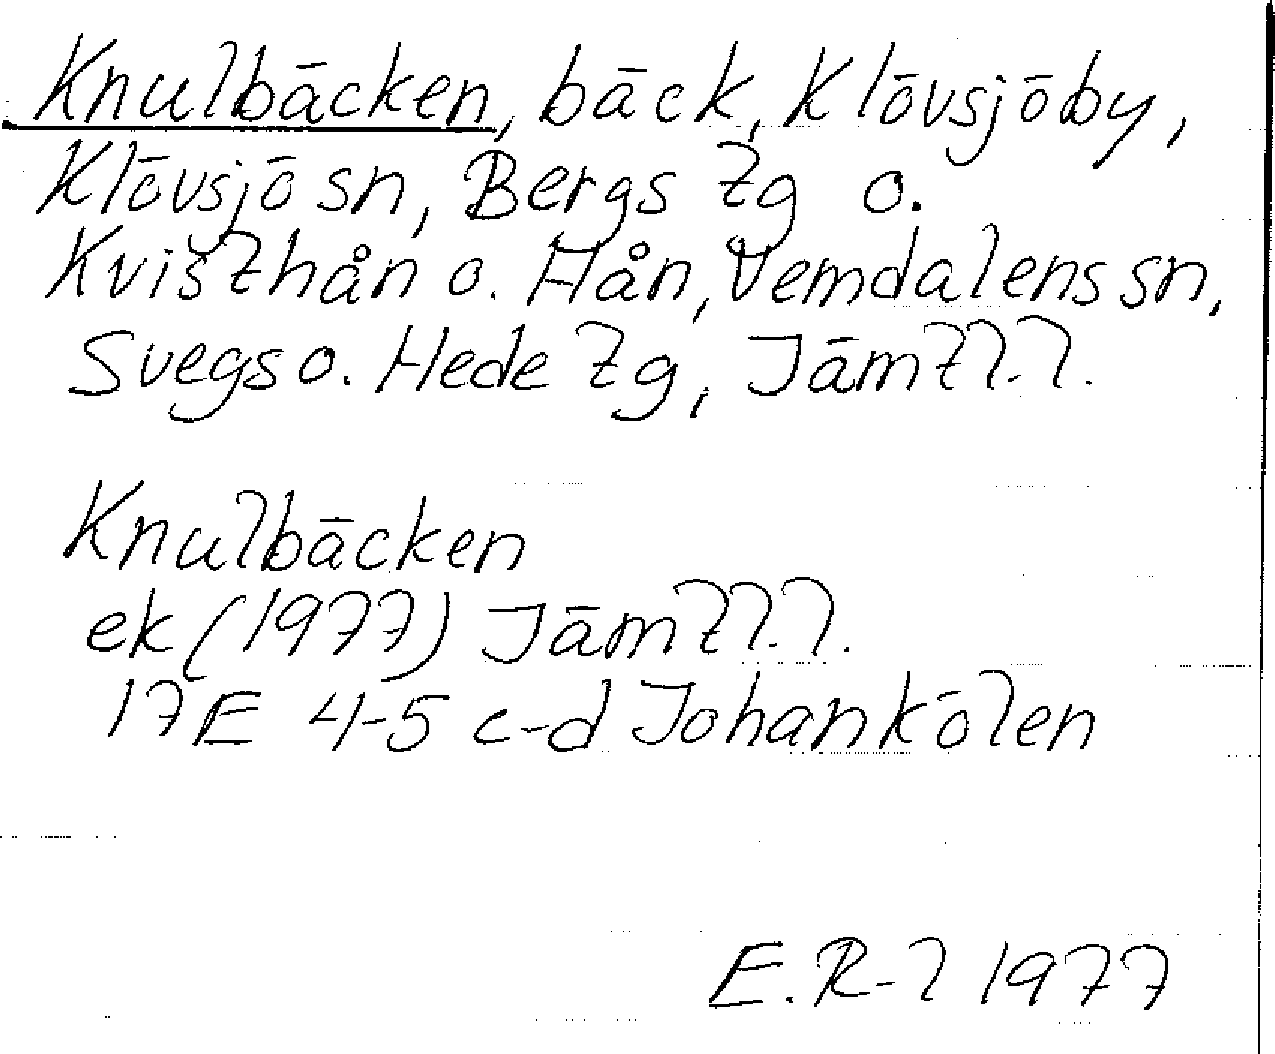 Knulbäcken, bäck, Klövsjöby,
Klövsjö sn, Bergs tg o.
Kvisthån o. Hån, Vemdalens sn,
Svegs o. Hede tg, Jämtl.l.
Knulbäcken
ek (1977) Jämtl.l.
17E 4-5 c-d Johankölen
E.R-l 1977